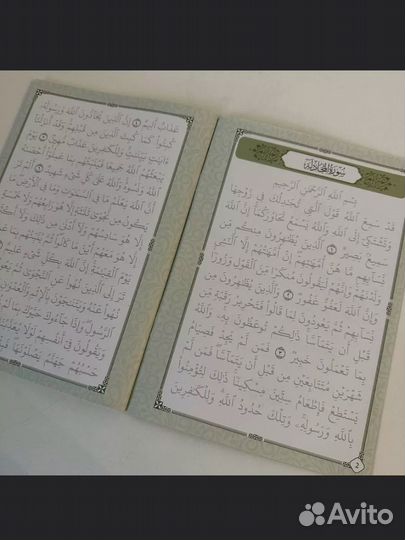 سُورَةُ المُجَادلة
بِسْمِ ٱللَّهِ ٱلرَّحْمَٰنِ ٱلرَّحِيمِ
قَدْ سَمِعَ ٱللَّهُ قَوْلَ ٱلَّتِي تُجَٰدِلُكَ فِي زَوْجِهَا
وَتَشْتَكِيٓ إِلَى ٱللَّهِ وَٱللَّهُ يَسْمَعُ تَحَاوُرَكُمَآ إِنَّ ٱللَّهَ
سَمِيعٌۢ بَصِيرٌ ١ ٱلَّذِينَ يُظَٰهِرُونَ مِنكُم مِّن
نِّسَآئِهِم مَّا هُنَّ أُمَّهَٰتِهِمْ إِنْ أُمَّهَٰتُهُمْ إِلَّا ٱلَّٰٓـِٔي
وَلَدْنَهُمْ وَإِنَّهُمْ لَيَقُولُونَ مُنكَرًا مِّنَ ٱلْقَوْلِ وَزُورًا
وَإِنَّ ٱللَّهَ لَعَفُوٌّ غَفُورٌ ٢ وَٱلَّذِينَ يُظَٰهِرُونَ مِن
نِّسَآئِهِمْ ثُمَّ يَعُودُونَ لِمَا قَالُوا۟ فَتَحْرِيرُ رَقَبَةٍ مِّن
قَبْلِ أَن يَتَمَآسَّا ذَٰلِكُمْ تُوعَظُونَ بِهِۦ وَٱللَّهُ
بِمَا تَعْمَلُونَ خَبِيرٌ ٣ فَمَن لَّمْ يَجِدْ فَصِيَامُ
شَهْرَيْنِ مُتَتَابِعَيْنِ مِن قَبْلِ أَن يَتَمَآسَّا فَمَن لَّمْ
يَسْتَطِعْ فَإِطْعَامُ سِتِّينَ مِسْكِينًا ذَٰلِكَ لِتُؤْمِنُوا۟
بِٱللَّهِ وَرَسُولِهِۦ وَتِلْكَ حُدُودُ ٱللَّهِ وَلِلْكَٰفِرِينَ
2
عَذَابٌ أَلِيمٌ ٤ إِنَّ ٱلَّذِينَ يُحَآدُّونَ ٱللَّهَ وَرَسُولَهُۥ
كُبِتُوا۟ كَمَا كُبِتَ ٱلَّذِينَ مِن قَبْلِهِمْ وَقَدْ أَنزَلْنَآ
ءَايَٰتٍۭ بَيِّنَٰتٍ وَلِلْكَٰفِرِينَ عَذَابٌ مُّهِينٌ ٥ يَوْمَ
يَبْعَثُهُمُ ٱللَّهُ جَمِيعًا فَيُنَبِّئُهُم بِمَا عَمِلُوٓا۟ أَحْصَىٰهُ
ٱللَّهُ وَنَسُوهُ وَٱللَّهُ عَلَىٰ كُلِّ شَىْءٍ شَهِيدٌ ٦ أَلَمْ تَرَ
أَنَّ ٱللَّهَ يَعْلَمُ مَا فِي ٱلسَّمَٰوَٰتِ وَمَا فِي ٱلْأَرْضِ مَا
يَكُونُ مِن نَّجْوَىٰ ثَلَٰثَةٍ إِلَّا هُوَ رَابِعُهُمْ وَلَا خَمْسَةٍ
إِلَّا هُوَ سَادِسُهُمْ وَلَآ أَدْنَىٰ مِن ذَٰلِكَ وَلَآ أَكْثَرَ
إِلَّا هُوَ مَعَهُمْ أَيْنَ مَا كَانُوا۟ ثُمَّ يُنَبِّئُهُم بِمَا عَمِلُوا۟
يَوْمَ ٱلْقِيَٰمَةِ إِنَّ ٱللَّهَ بِكُلِّ شَىْءٍ عَلِيمٌ
تَرَ إِلَى ٱلَّذِينَ نُهُوا۟ عَنِ ٱلنَّجْوَىٰ ثُمَّ يَعُودُونَ
نُهُوا۟ عَنْهُ وَيَتَنَٰجَوْنَ بِٱلْإِثْمِ وَٱلْعُدْوَٰنِ
ٱلرَّسُولِ وَإِذَا جَآءُوكَ حَيَّوْكَ بِمَا
وَيَقُولُونَ فِيٓ أَنفُسِهِمْ لَوْلَا يُعَذِّبُنَا
حَسْبُهُمْ جَهَنَّمُ يَصْلَوْنَهَا
Avito